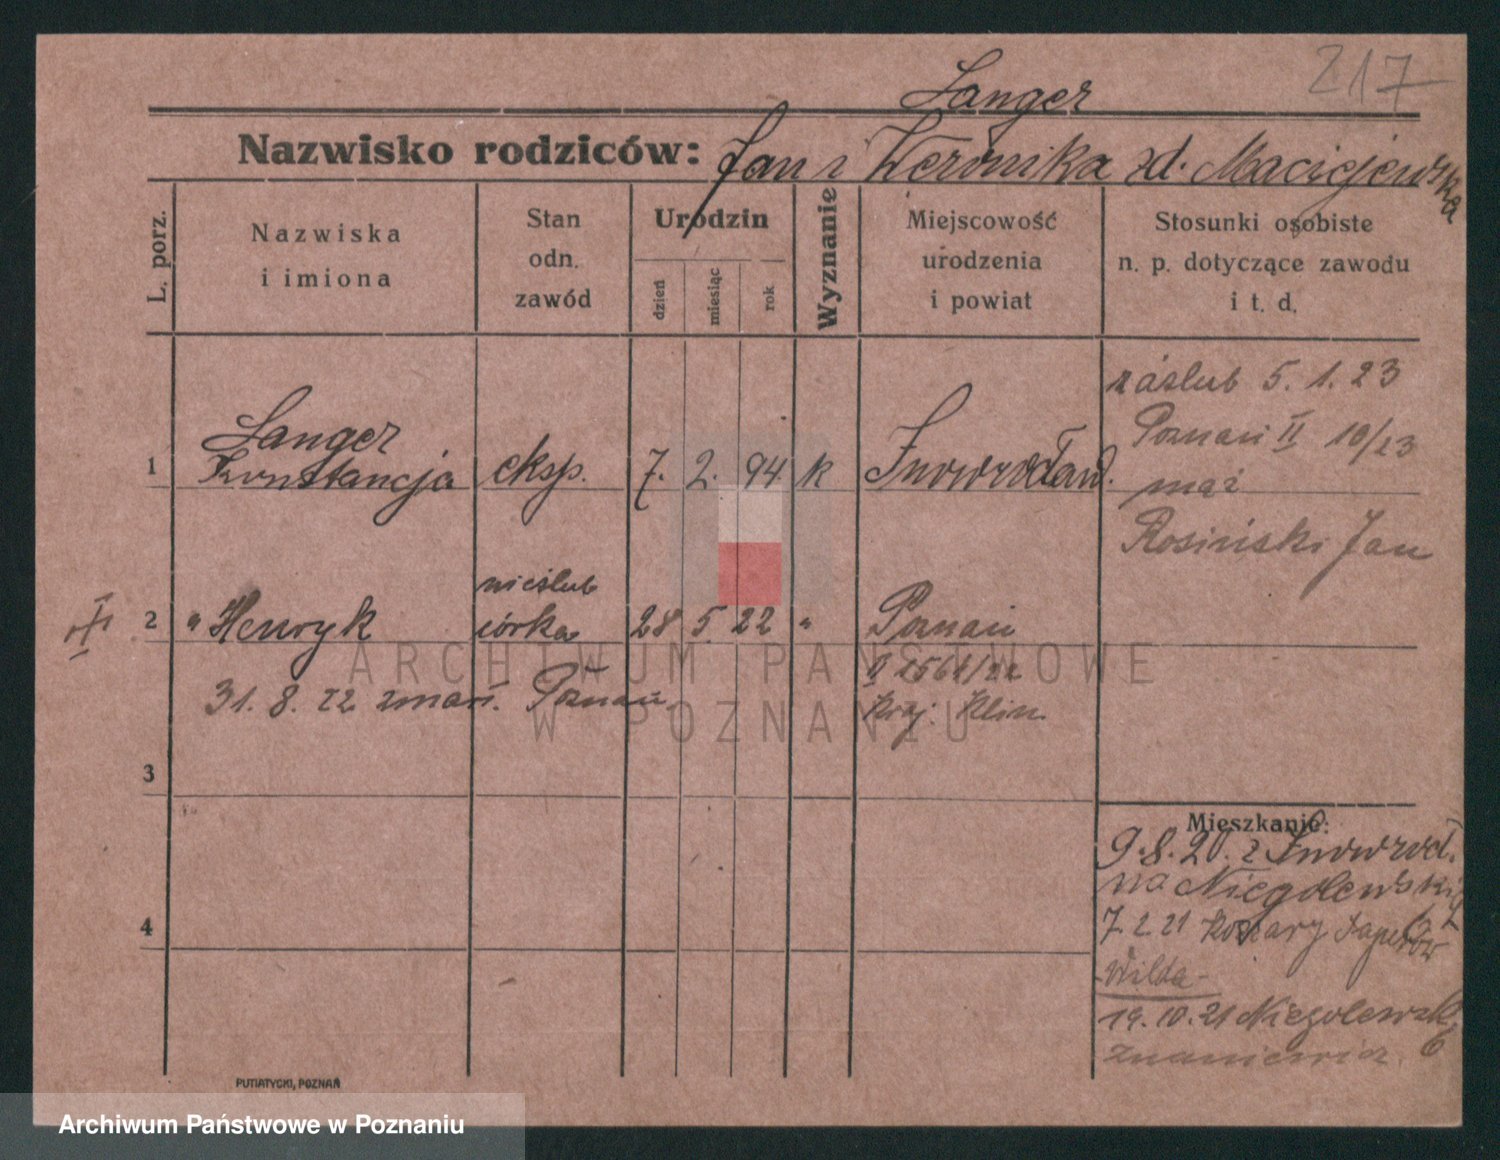 217
Langer
Nazwisko rodziców: Jan i Weronika zd. Maciejewska
L. porz.
Nazwiska
i imiona
Stan
odn.
zawód
Urodzin
dzień
miesiąc
rok
Wyznanie
Miejscowość
urodzenia
i powiat
Stosunki osobiste
n. p. dotyczące zawodu
i t. d.
1
Langer
Konstancja
eksp.
7. 2. 94
k
Inowrocław.
záślub 5. 1. 23
Poznań II 10/23
mąż
Rosiński Jan
2
" Henryk
nieślub
córka
28 5. 22
"
Poznań
II 1564/22
Kraj. Klin.
31. 8. 22 zmarł. Poznań.
3
4
Mieszkanie:
9.8.20. z Inowrocł.
na Niegolewskich
7. 2 21
Wilda
19.10.21 Niegolewsk. 6
PUTIATYCKI, POZNAŃ
ARCHIWUM PAŃSTWOWE
W POZNANIU
Archiwum Państwowe w Poznaniu